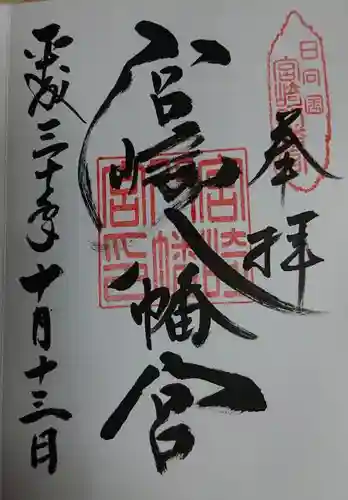 奉拝
日向国
宮崎八幡宮
宮崎八幡宮印
平成三十年十月十三日